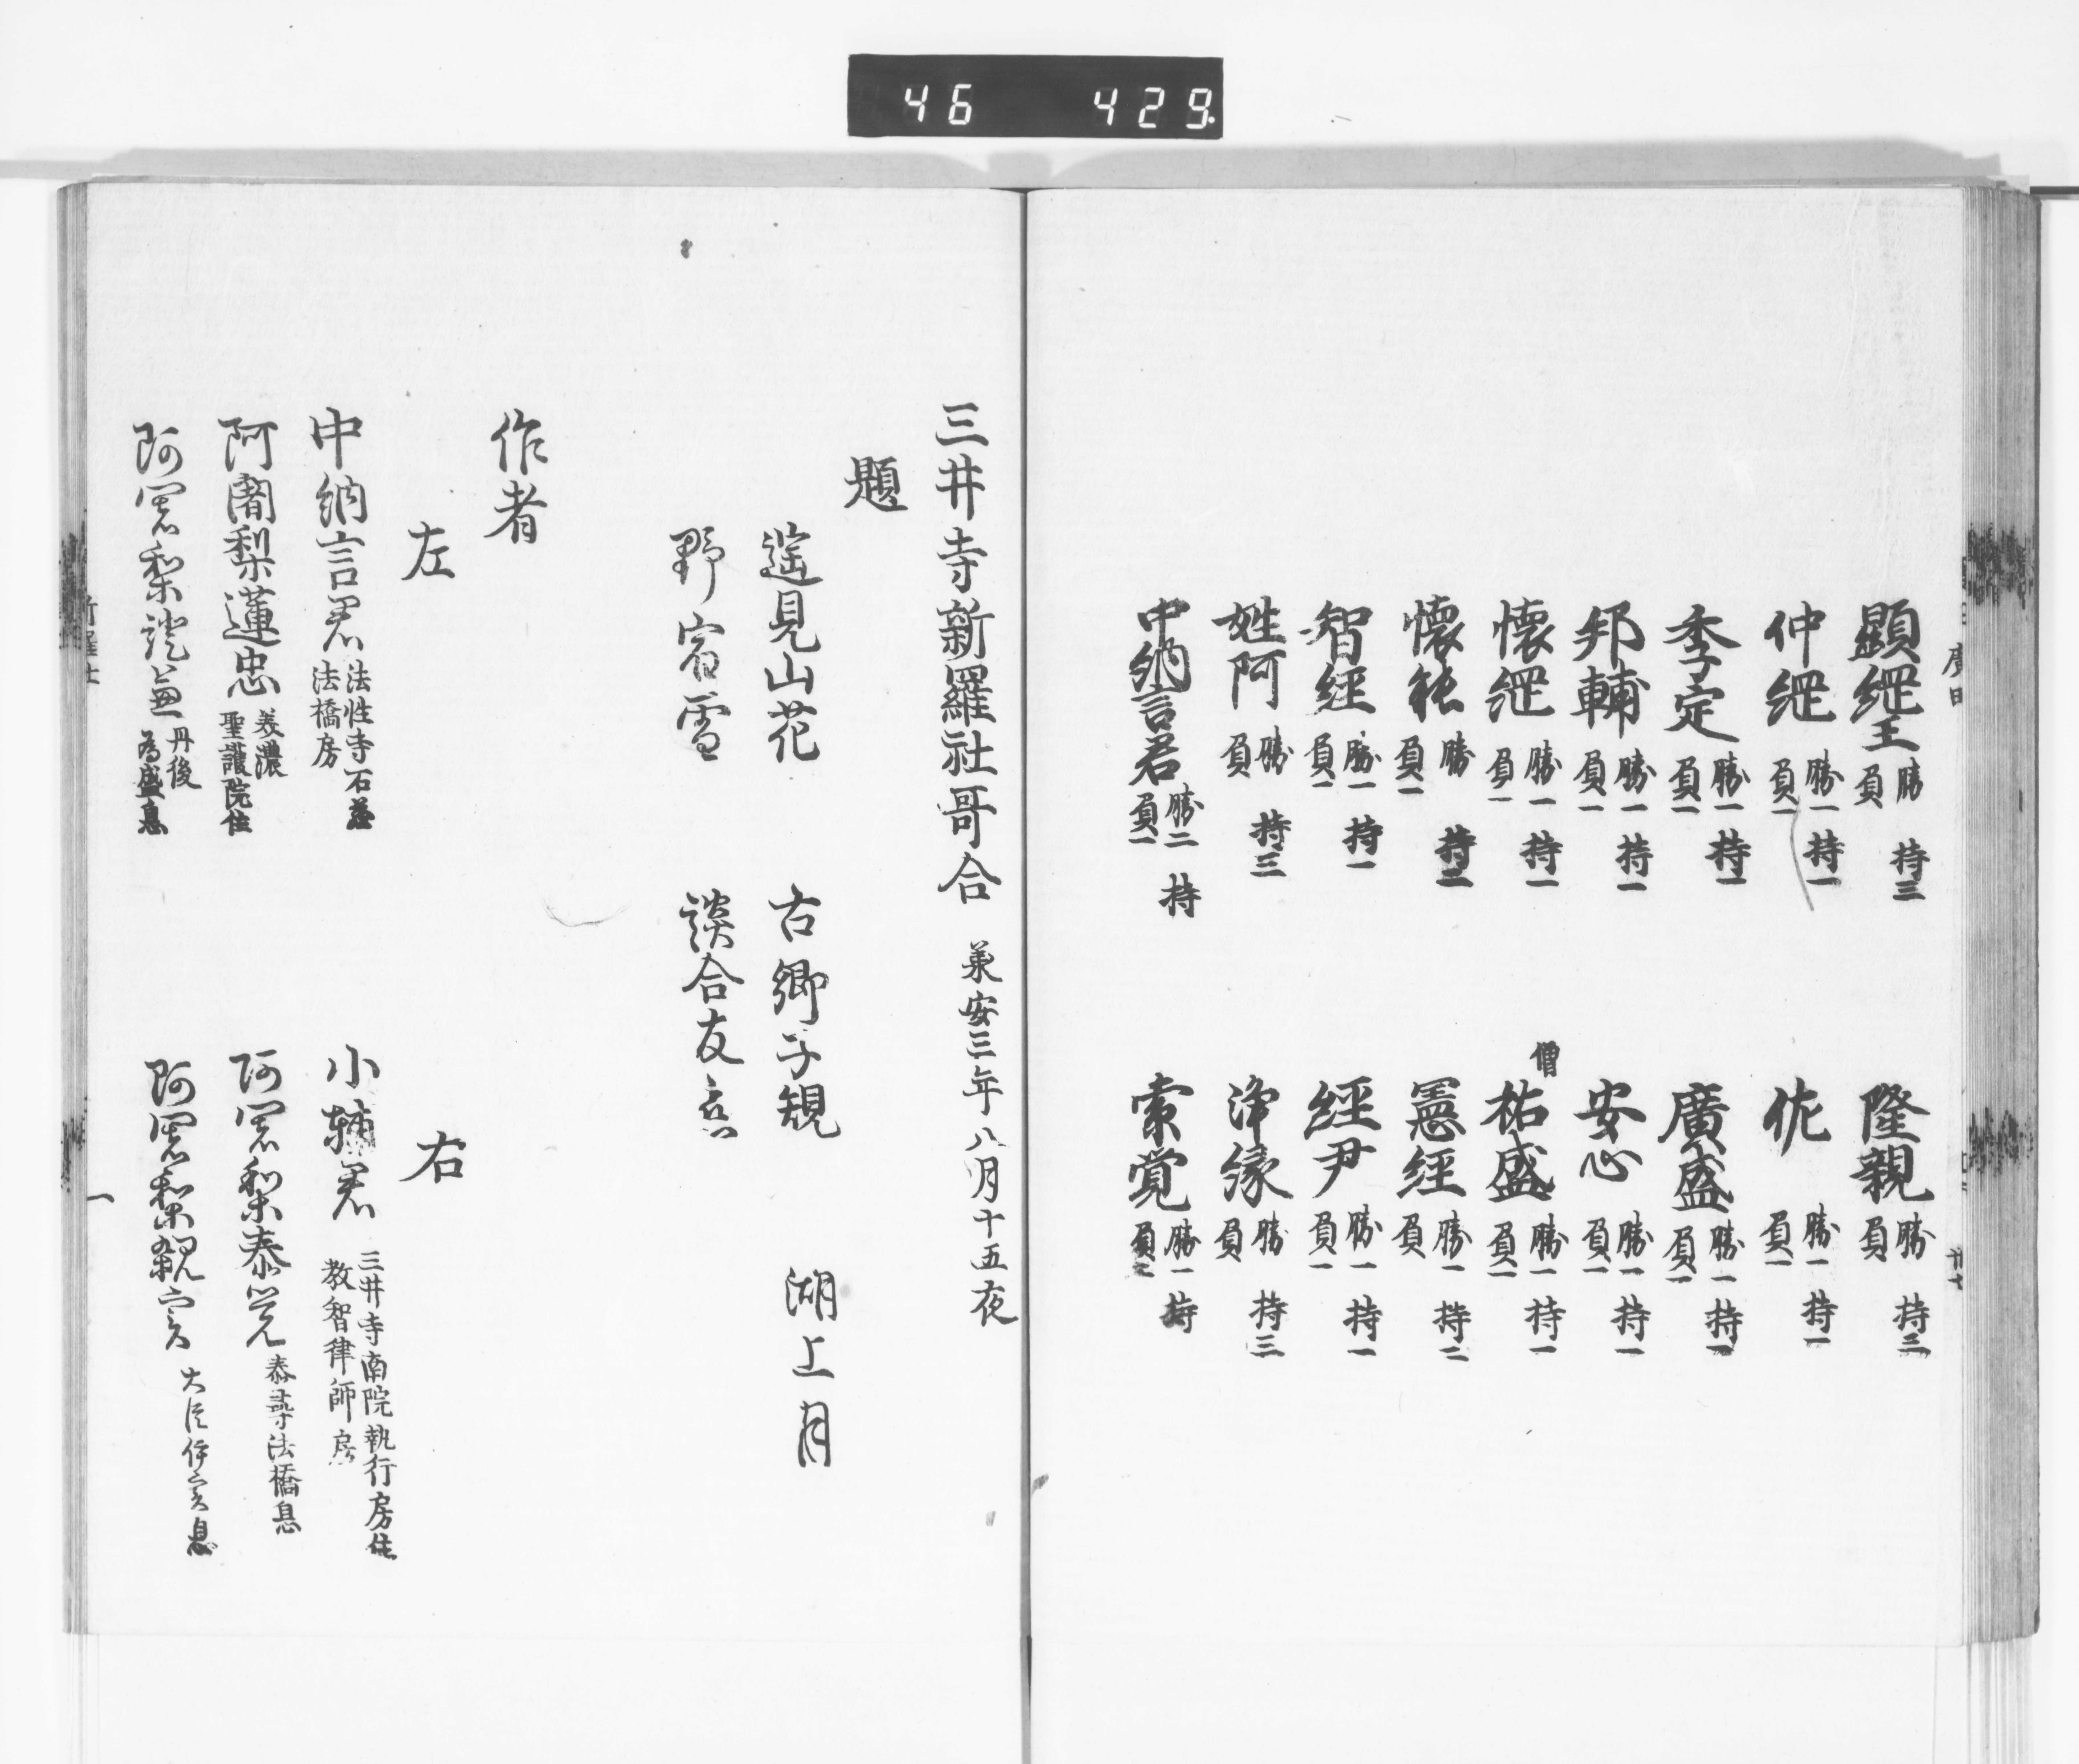 46 429
顕綱王 勝 負 持三
仲綱 勝一 負一 持一
季定 勝一 負一 持一
邦輔 勝一 負一 持一
懐綱 勝一 負一 持一
懐能 勝 負一 持二
智経 勝一 負一 持一
姓阿 勝 負 持三
中納言君 勝二 負一 持
隆親 勝 負 持三
佐 勝一 負一 持一
廣盛 勝一 負一 持一
安心 勝一 負一 持一
僧
祐盛 勝一 負一 持一
憲経 勝一 負 持二
経尹 勝一 負一 持一
浄縁 勝 負 持三
索覚 勝一 負二 持
三井寺新羅社哥合 承安三年八月十五夜
題
遥見山花 古郷子規 湖上月
野宿雪 談合友恋
作者
左 右
中納言君 法性寺石蔵
法橋房
小輔君 三井寺南院執行房住
教智律師房
阿闍梨蓮忠 美濃
聖護院住
阿闍梨泰覚 泰尋法橋息
阿闍梨證兼 丹後
為盛息
阿闍梨観宗 大臣伊実息
一